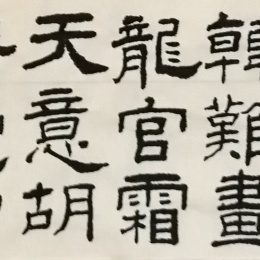 韓難畫
龍官霜
天意胡